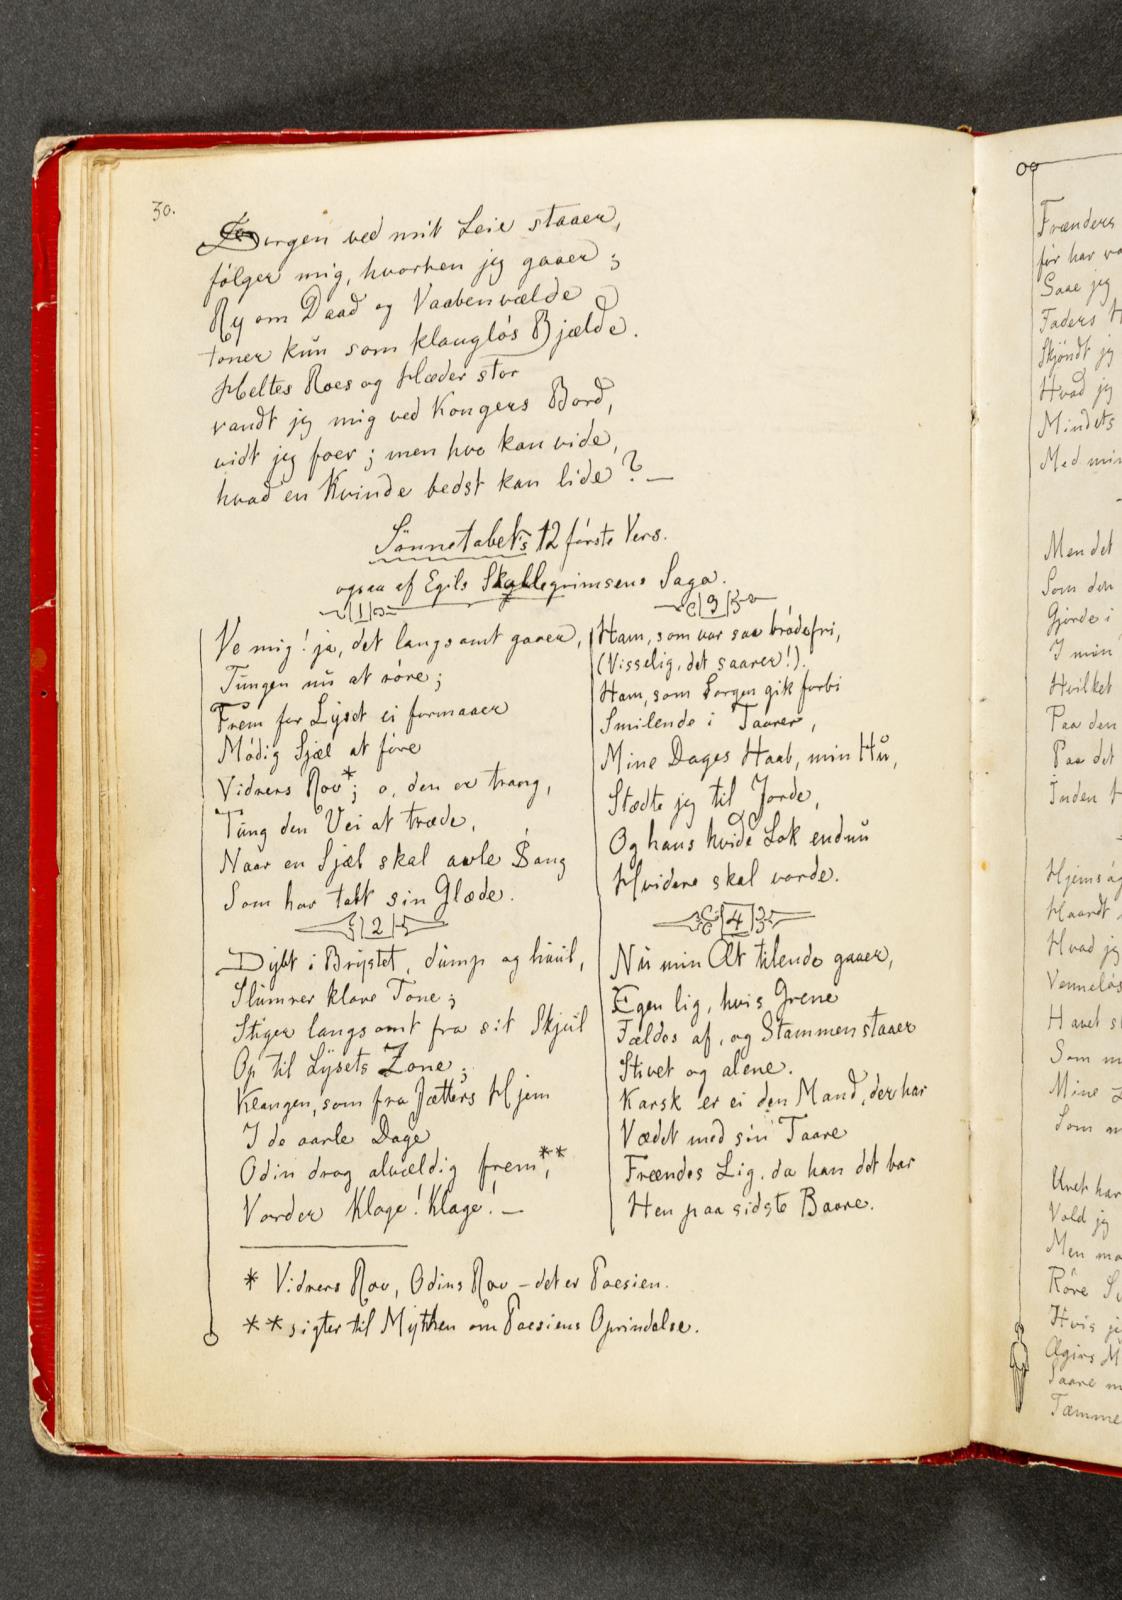 30.
Sorgen ved mit Leie staaer,
følger mig, hvorhen jeg gaaer;
Ry om Daad og Vaabenvælde
toner kŭn som klangløs Bjælde.
Heltes Roes og Hæder stor
vandt jeg mig ved Kongers Bord,
vidt jeg foer; men hvo kan vide,
hvad en Kvinde bedst kan lide? —
Sønnetabets 12 første Vers.
ogsaa af Egils Skallegrimsens Saga.
1
Ve mig! ja, det langsomt gaaer,
Tŭngen nŭ at røre;
Frem for Lyset ei formaaer
Modig Sjæl at føre
Vidrers Rov*; o, den er trang,
Tŭng den Vei at træde,
Naar en Sjæl skal avle Sang
Som har tabt sin Glæde.
2
Dybt i Brystet, dŭmp og hŭul,
Slŭmrer klare Tone;
Stiger langsomt fra sit Skjŭl
Op til Lysets Zone;
Klangen, som fra Jætters Hjem
I de aarle Dage
Odin drog alvældig frem**,
Vorder Klage! Klage! —
3
Ham, som var saa brødefri,
(Visselig, det saarer!).
Ham, som Sorgen gik forbi
Smilende i Taarer,
Mine Dages Haab, min Hŭ,
Stædte jeg til Jorde,
Og hans hvide Lok endnŭ
Hvidere skal vorde.
4
Nŭ min Æt tilende gaaer,
Egen lig, hvis Grene
Fældes af, og Stammen staaer
Stivet og alene.
Karsk er ei den Mand, der har
Vædet med sin Taare
Frændes Lig, da han det bar
Hen paa sidste Baare.
* Vidrers Rov, Odins Rov – det er Poesien.
** sigter til Mythen om Poesiens Oprindelse.
Frænders
før har
Saae jeg
Faders
Skjøndt jeg
Hvad jeg
Mindets
Med min
Men det
Som den
Gjorde i
I min
Hvilket
Paa den
Paa det
Inden
Haardt
Hvad jeg
Venneløs
Havet
Som
Mine
Som
Uret har
Vold jeg
Men
Røre
Hvis
Ægirs
Saare
Tæmme